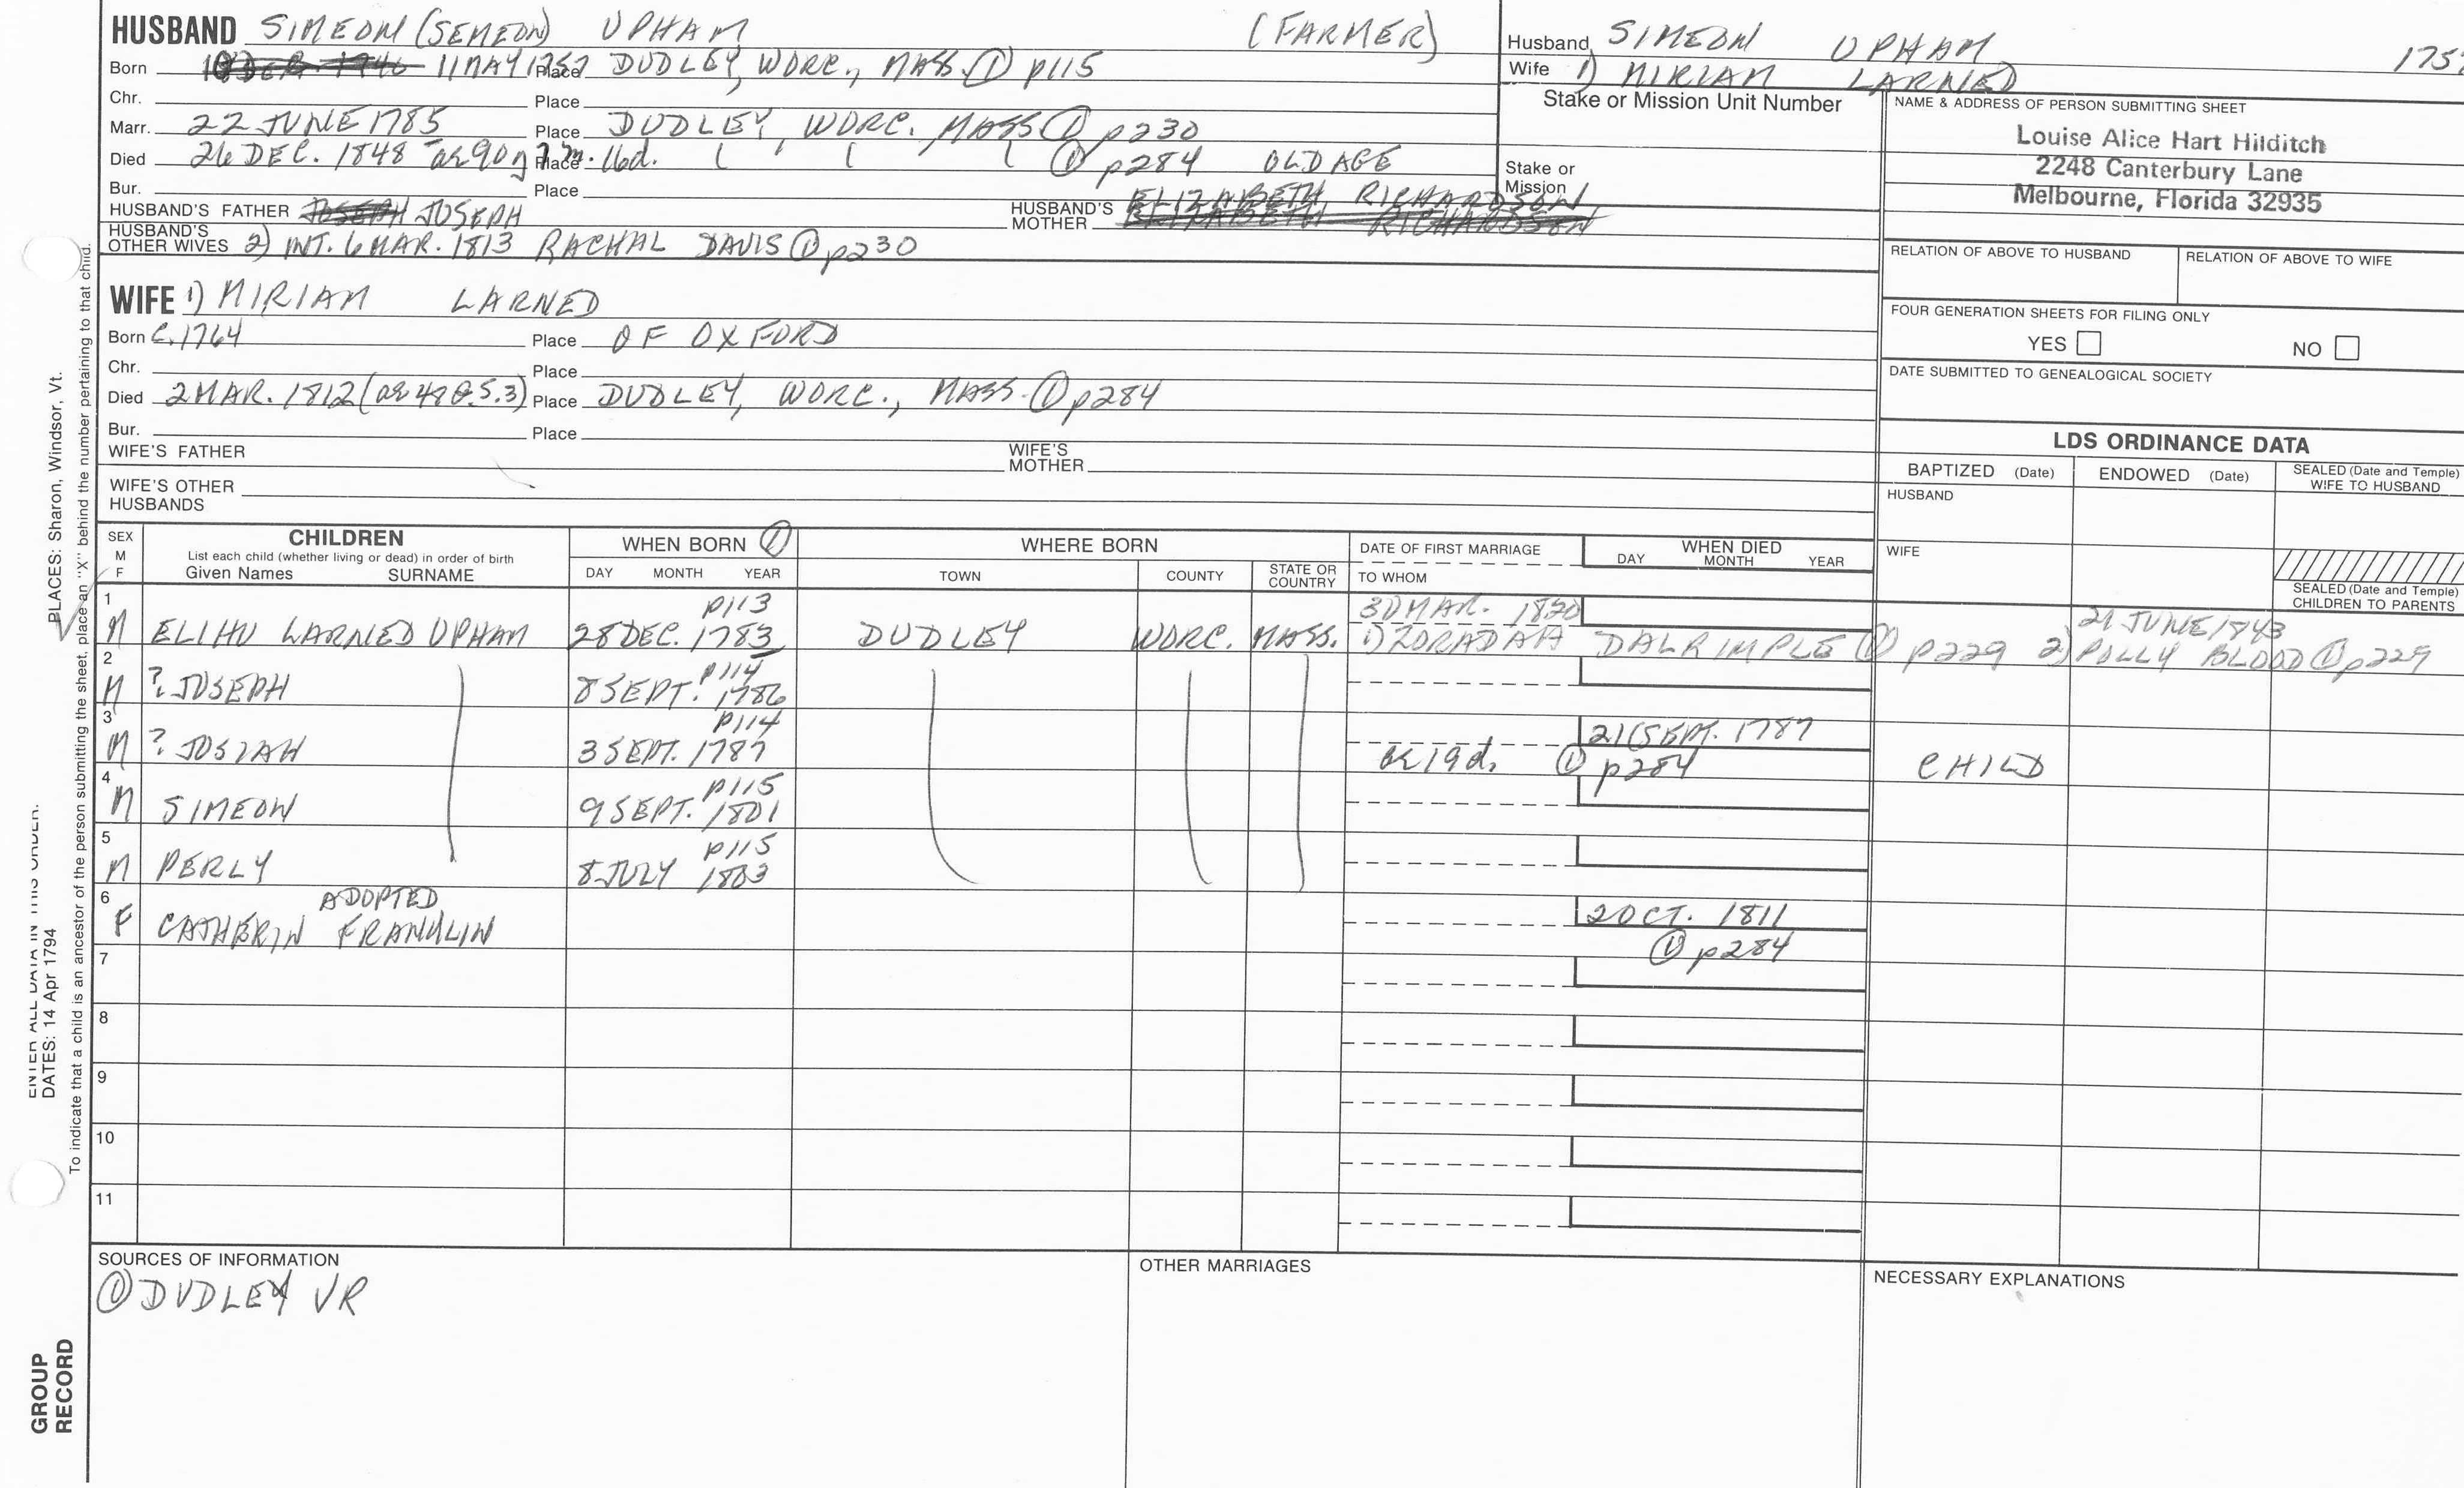 HUSBAND SIMEON (SEMEON) UPHAM (FARMER)
Born 11 MAY 1757 Place DUDLEY, WORC., MASS. ① p115
Chr. Place
Marr. 22 JUNE 1785 Place DUDLEY, WORC. MASS ① p230
Died 26 DEC. 1848 ae 90y 7m. 16d. Place ① p284 OLD AGE
Bur. Place
HUSBAND'S FATHER JOSEPH JOSEPH HUSBAND'S MOTHER ELIZABETH RICHARDSON ELIZABETH RICHARDSON
HUSBAND'S OTHER WIVES 2) INT. 6 MAR. 1813 RACHAL DAVIS ① p230
WIFE 1) MIRIAM LARNED
Born C. 1764 Place OF OXFORD
Chr. Place
Died 2 MAR. 1812 (ae 48 G.S.3) Place DUDLEY, WORC., MASS. ① p284
Bur. Place
WIFE'S FATHER WIFE'S MOTHER
WIFE'S OTHER HUSBANDS
Husband SIMEON UPHAM 175
Wife 1) MIRIAM LARNED
Stake or Mission Unit Number
Stake or Mission
NAME & ADDRESS OF PERSON SUBMITTING SHEET
Louise Alice Hart Hilditch
2248 Canterbury Lane
Melbourne, Florida 32935
RELATION OF ABOVE TO HUSBAND RELATION OF ABOVE TO WIFE
FOUR GENERATION SHEETS FOR FILING ONLY
YES NO
DATE SUBMITTED TO GENEALOGICAL SOCIETY
LDS ORDINANCE DATA
BAPTIZED (Date) ENDOWED (Date) SEALED (Date and Temple) WIFE TO HUSBAND
HUSBAND
WIFE
SEALED (Date and Temple) CHILDREN TO PARENTS
SEX M F CHILDREN WHEN BORN ① WHERE BORN DATE OF FIRST MARRIAGE WHEN DIED
List each child (whether living or dead) in order of birth
Given Names SURNAME DAY MONTH YEAR TOWN COUNTY STATE OR COUNTRY TO WHOM DAY MONTH YEAR
1 p113 30 MAR. 1820 21 JUNE 1843
M ELIHU LARNED UPHAM 28 DEC. 1783 DUDLEY WORC. MASS. 1) ZORADAH DALRIMPLE ① p229 2) POLLY BLOOD ① p229
2 p114
M ? JOSEPH 8 SEPT. 1786
3 p114 21 SEPT. 1787
M ? JOSIAH 3 SEPT. 1787 ae 19d. ① p284 CHILD
4 p115
M SIMEON 9 SEPT. 1801
5 p115
M PERLY 8 JULY 1803
6 ADOPTED 2 OCT. 1811
F CATHERIN FRANKLIN
① p284
7
8
9
10
11
SOURCES OF INFORMATION OTHER MARRIAGES NECESSARY EXPLANATIONS
① DUDLEY VR
PLACES: Sharon, Windsor, Vt.
To indicate that a child is an ancestor of the person submitting the sheet, place an "X" behind the number pertaining to that child.
ENTER ALL DATA IN THIS ORDER:
DATES: 14 Apr 1794
GROUP
RECORD